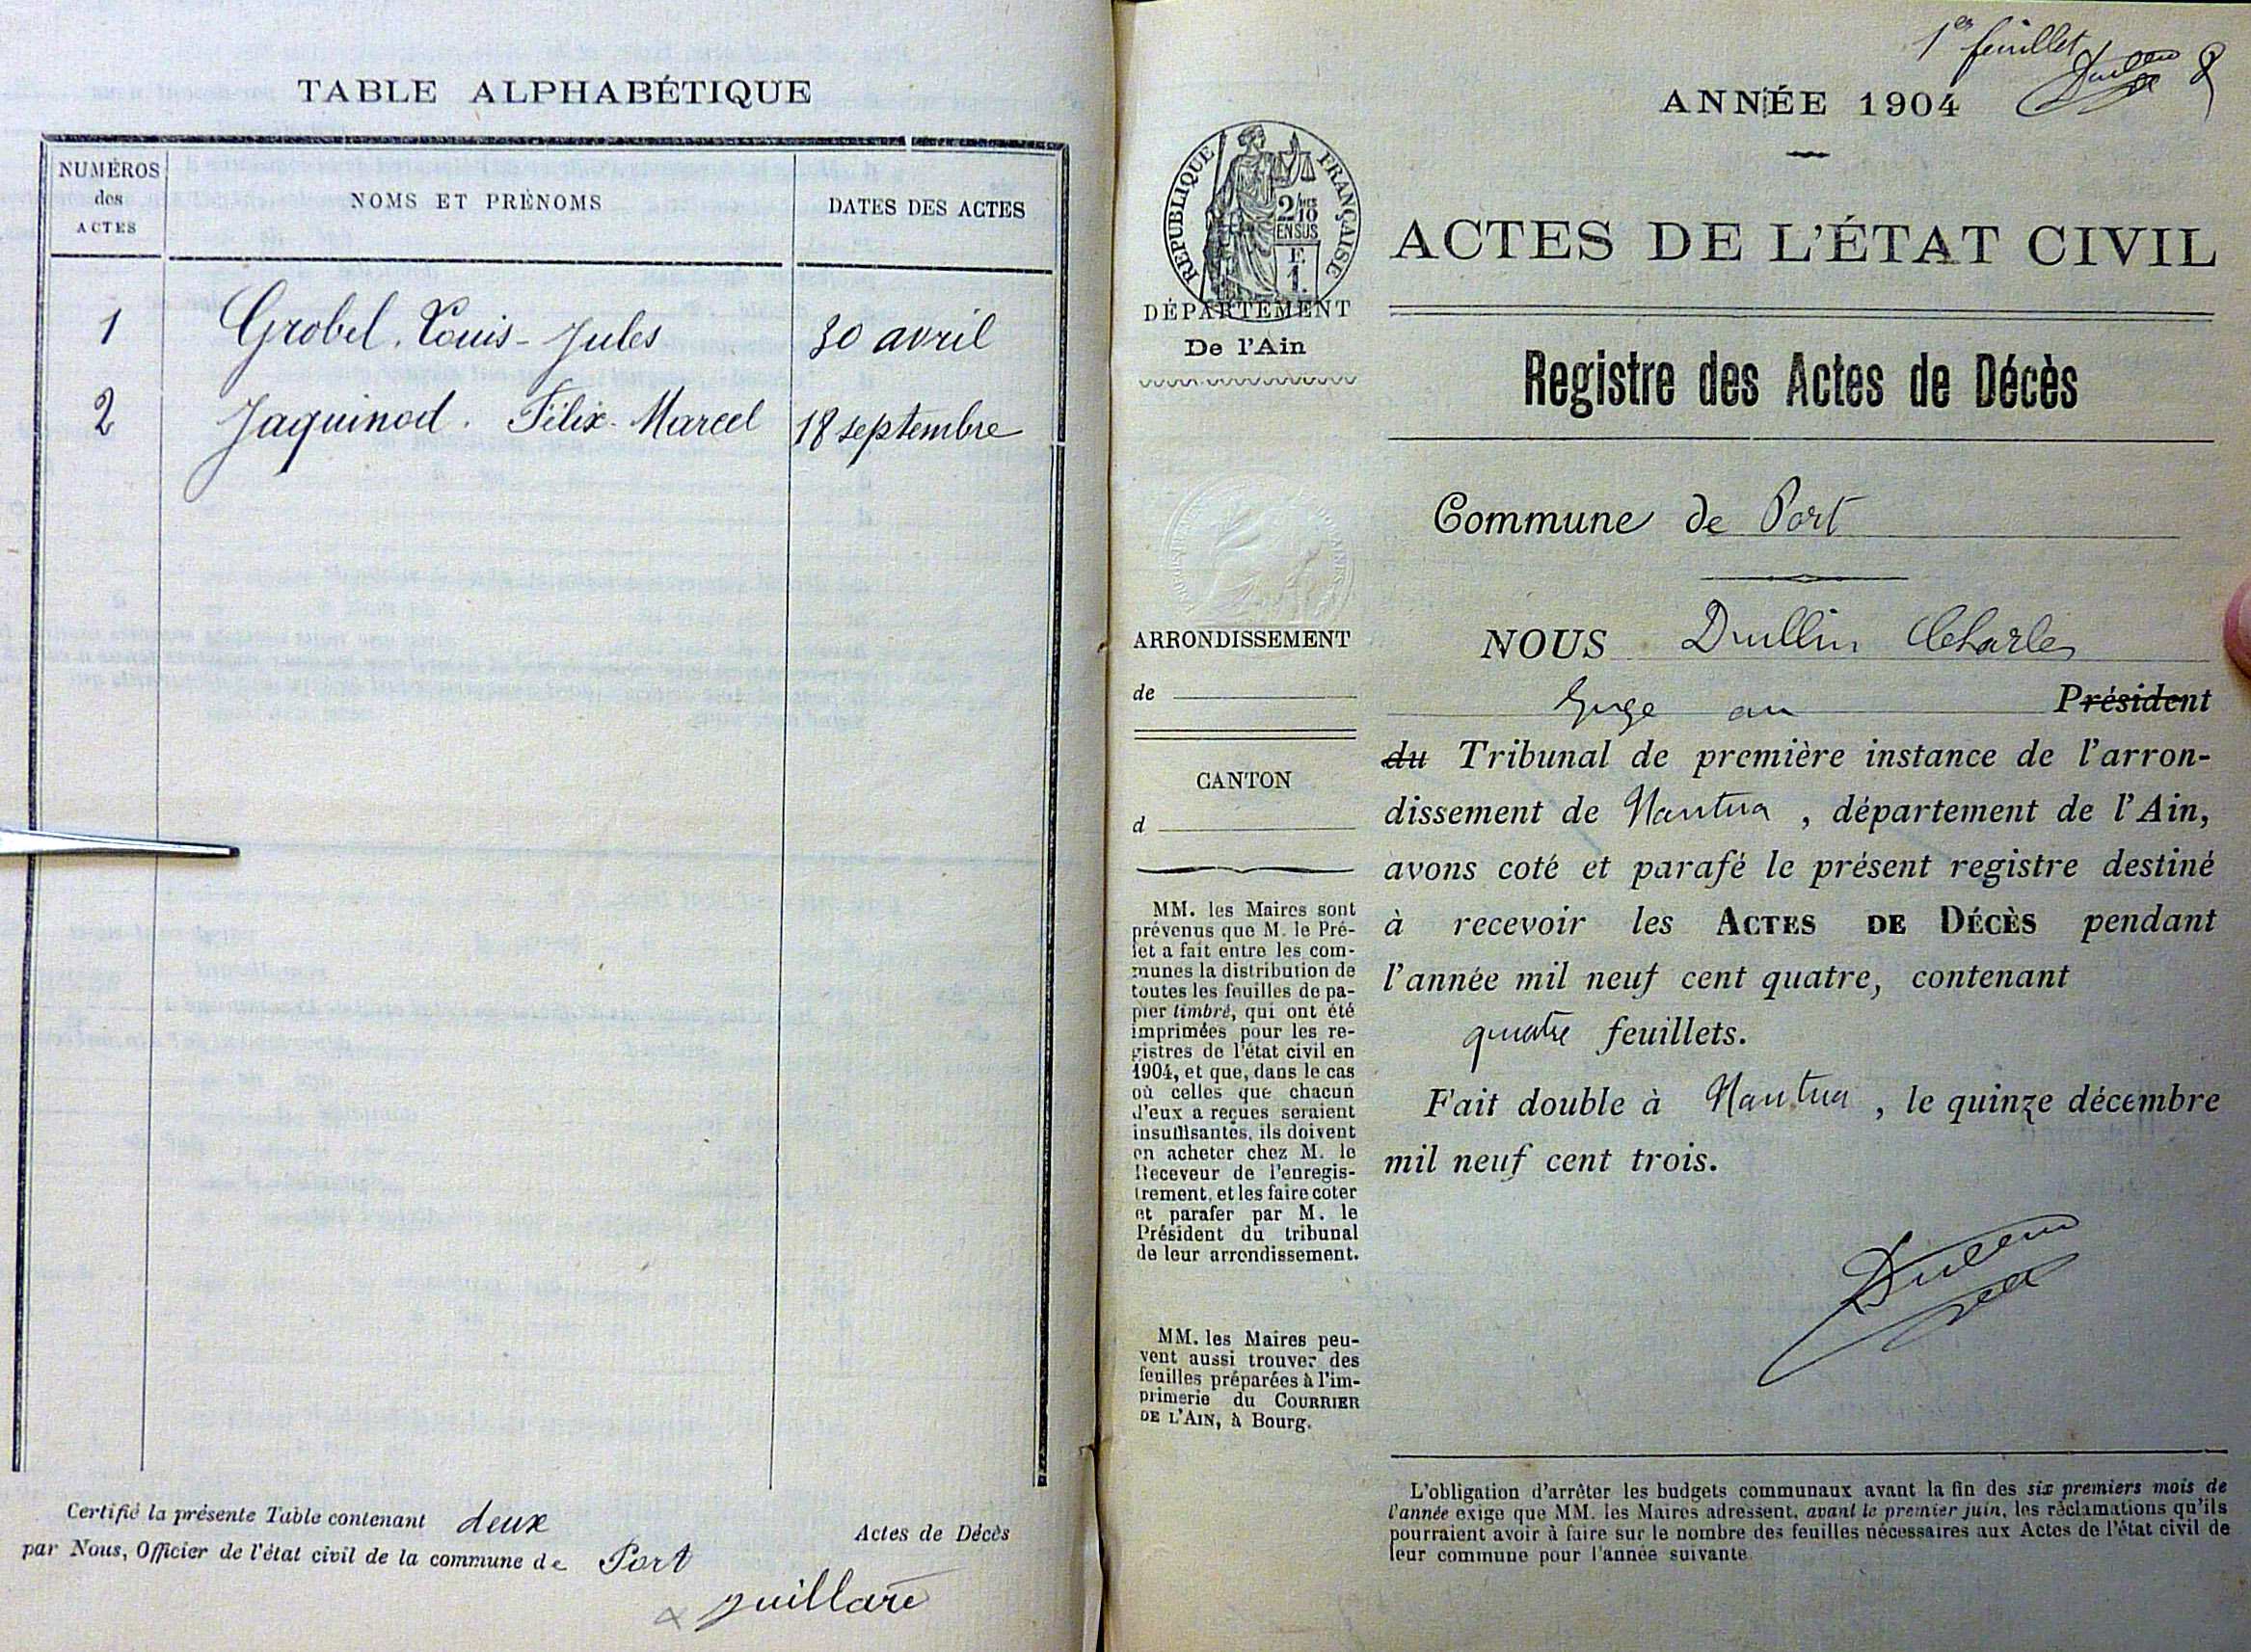 TABLE ALPHABÉTIQUE
NUMÉROS
des
ACTES
NOMS ET PRÉNOMS
DATES DES ACTES
1 Grobel. Louis-Jules 30 avril
2 Jaquinod. Félix-Marcel 18 septembre
Certifié la présente Table contenant deux Actes de Décès
par Nous, Officier de l'état civil de la commune de Port
Juillard
1er feuillet
ANNÉE 1904
RÉPUBLIQUE FRANÇAISE
2/10
EN SUS
F.
1.
DÉPARTEMENT
De l'Ain
ARRONDISSEMENT
de
CANTON
d
MM. les Maires sont
prévenus que M. le Pré-
fet a fait entre les com-
munes la distribution de
toutes les feuilles de pa-
pier timbré, qui ont été
imprimées pour les re-
gistres de l'état civil en
1904, et que, dans le cas
où celles que chacun
d'eux a reçues seraient
insuffisantes, ils doivent
en acheter chez M. le
Receveur de l'enregis-
trement, et les faire coter
et parafer par M. le
Président du tribunal
de leur arrondissement.
MM. les Maires peu-
vent aussi trouver des
feuilles préparées à l'im-
primerie du COURRIER
DE L'AIN, à Bourg.
ACTES DE L'ÉTAT CIVIL
Registre des Actes de Décès
Commune de Port
NOUS Dullin Charles
Juge au Président
du Tribunal de première instance de l'arron-
dissement de Nantua, département de l'Ain,
avons coté et parafé le présent registre destiné
à recevoir les ACTES DE DÉCÈS pendant
l'année mil neuf cent quatre, contenant
quatre feuillets.
Fait double à Nantua, le quinze décembre
mil neuf cent trois.
Dullin
L'obligation d'arrêter les budgets communaux avant la fin des six premiers mois de
l'année exige que MM. les Maires adressent, avant le premier juin, les réclamations qu'ils
pourraient avoir à faire sur le nombre des feuilles nécessaires aux Actes de l'état civil de
leur commune pour l'année suivante.